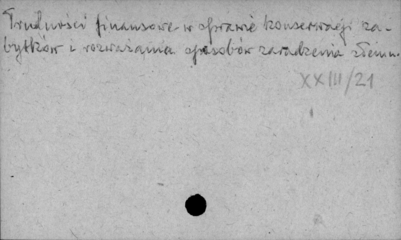 Trudności finansowe w sprawie konserwacji za-
bytków i rozważania sposobów zaradzenia złemu.
XXIII/21